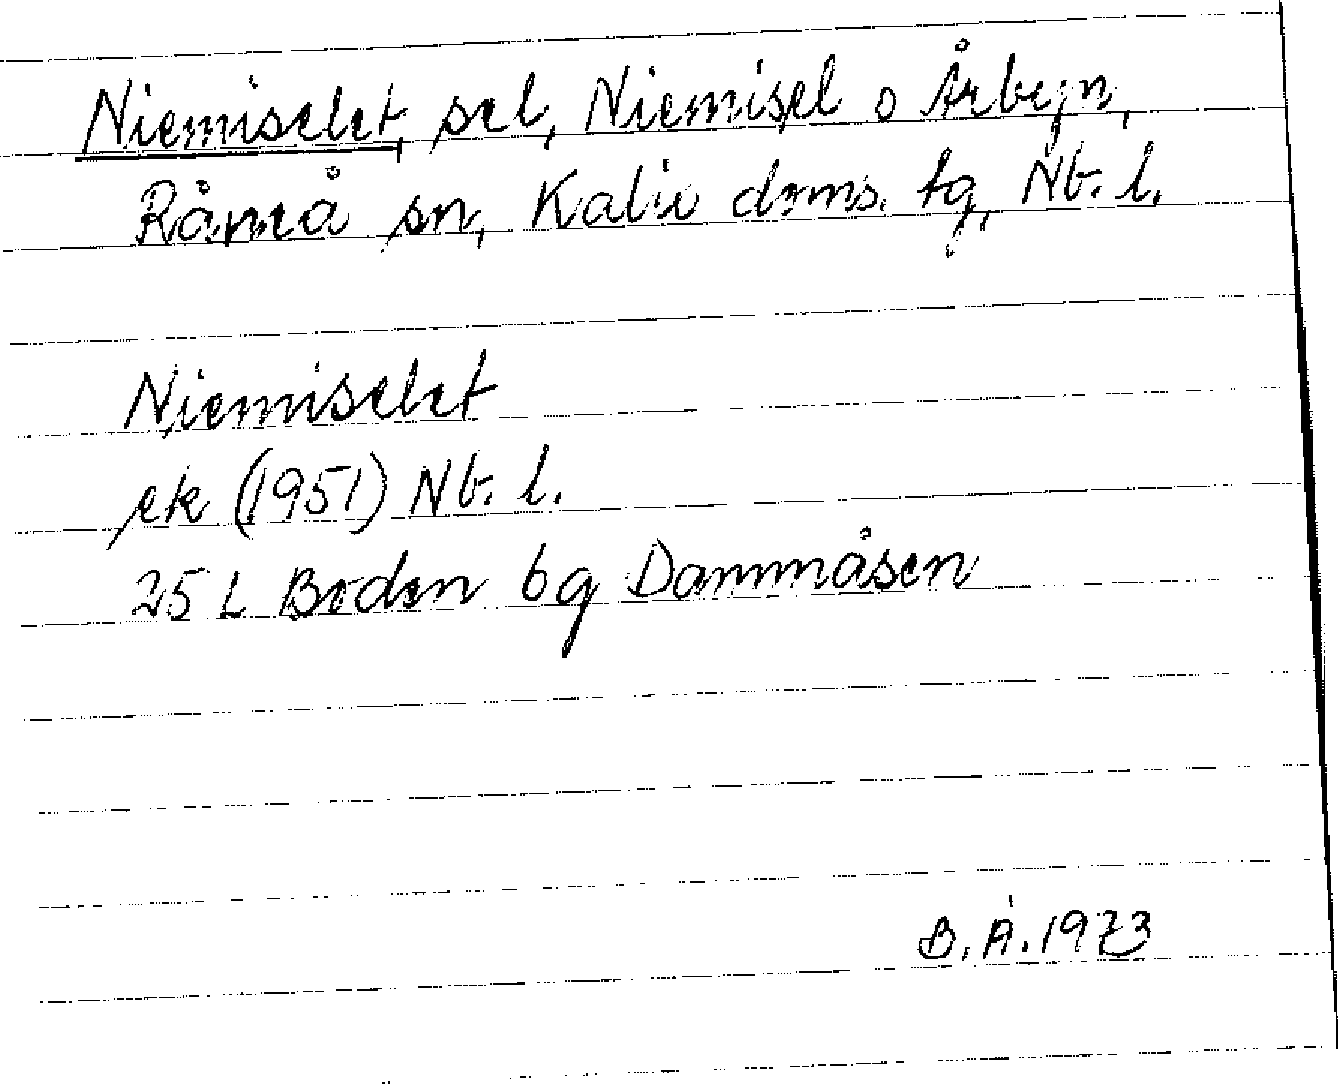 Niemiselet, sel, Niemisel o Årbyn,
Råneå sn, Kalix doms. tg, Nb. l.
Niemiselet
ek (1951) Nb. l.
25 L Boden 6g Dammåsen
B. Å. 1973